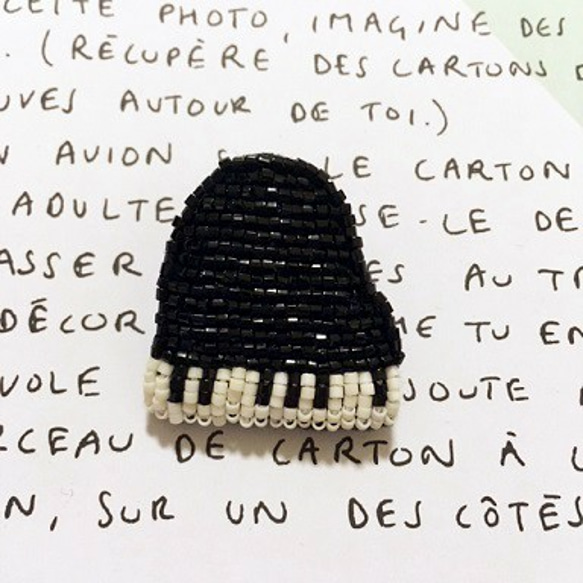 CETTE PHOTO, IMAGINE DES
. (RÉCUPÈRE DES CARTONS
UVES AUTOUR DE TOI.)
AVION LE CARTON
ADULTE SE-LE DE
ASSER ES AU
DÉCOR ME TU EN
VOLE JOUTE
RCEAU DE CARTON À
N, SUR UN DES CÔTÉS